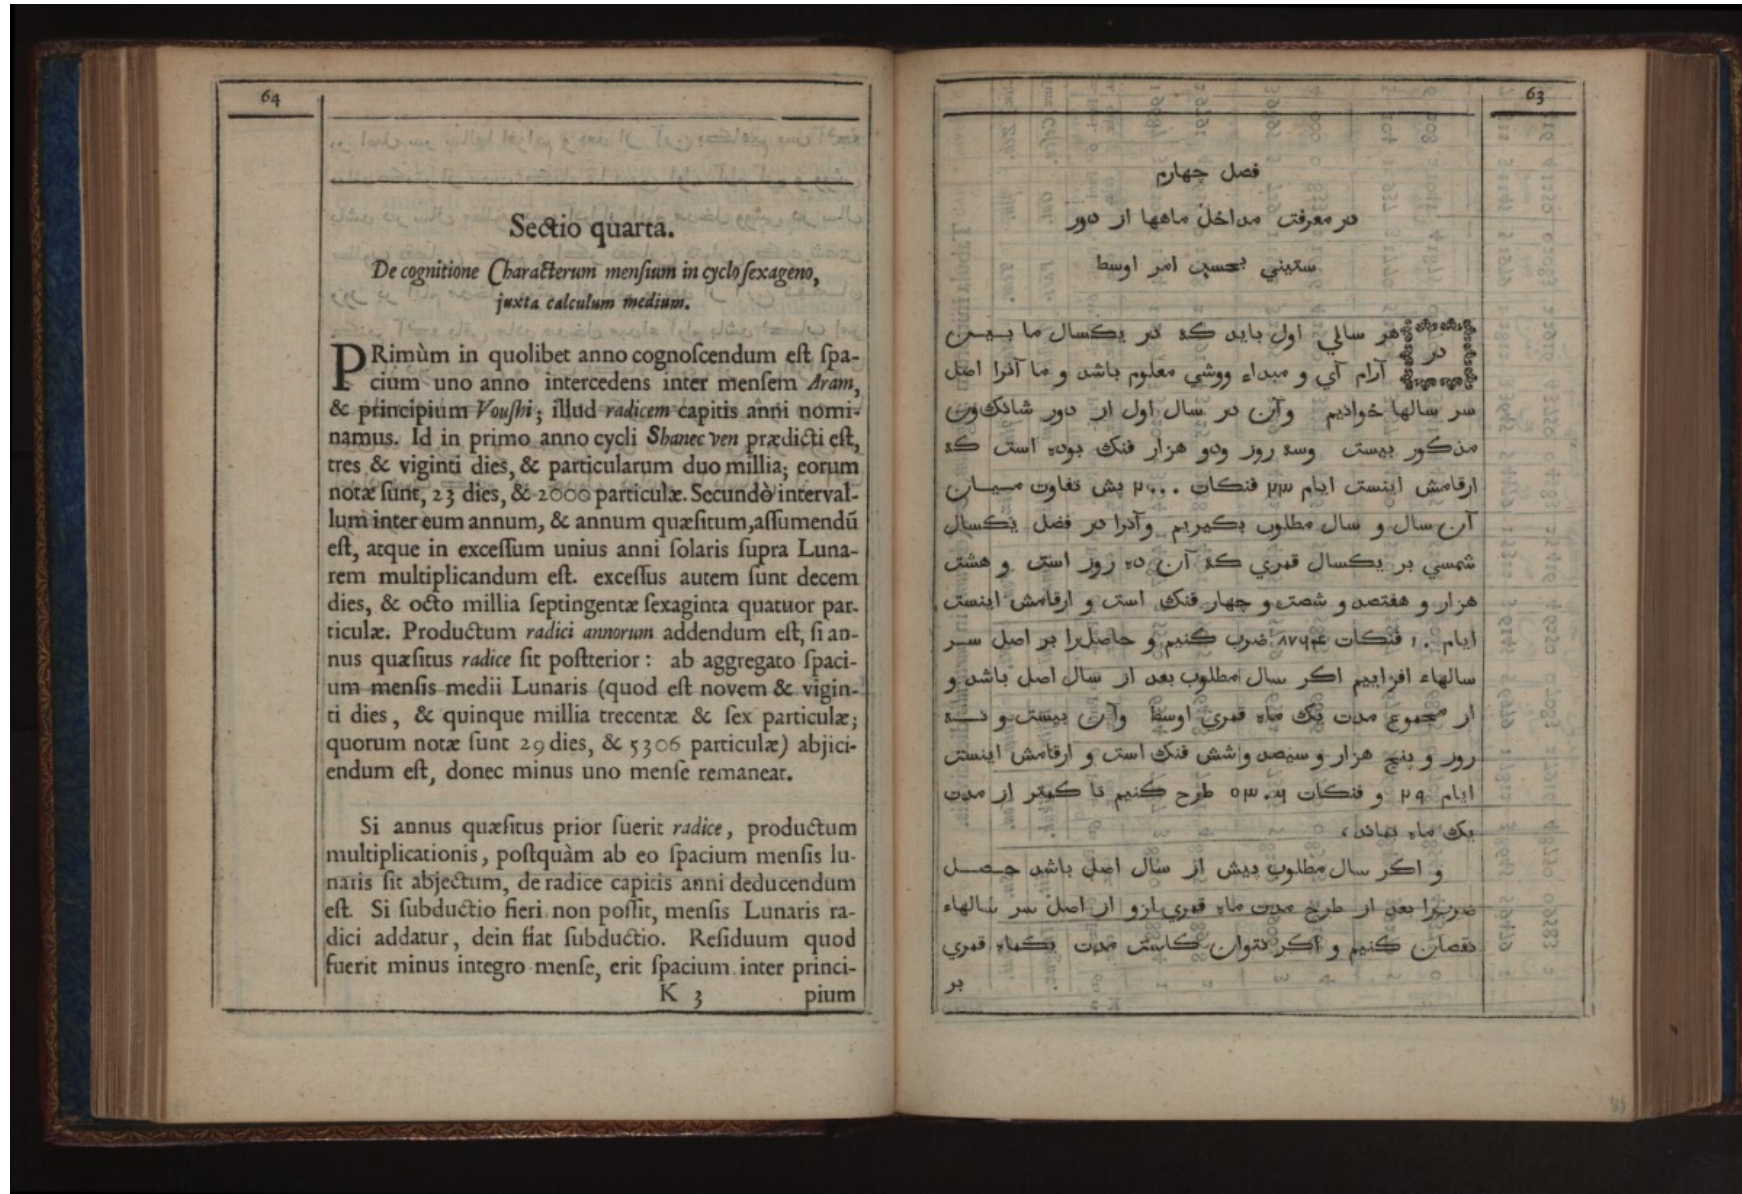 64
Sectio quarta.
De cognitione Characterum mensium in cyclo sexageno,
juxta calculum medium.
PRimùm in quolibet anno cognoscendum est spa-
cium uno anno intercedens inter mensem Aram,
& principium Voushi; illud radicem capitis anni nomi-
namus. Id in primo anno cycli Shanec ven prædicti est,
tres & viginti dies, & particularum duo millia; eorum
notæ sunt, 23 dies, & 2000 particulæ. Secundò interval-
lum inter eum annum, & annum quæsitum, assumendũ
est, atque in excessum unius anni solaris supra Luna-
rem multiplicandum est. excessus autem sunt decem
dies, & octo millia septingentæ sexaginta quatuor par-
ticulæ. Productum radici annorum addendum est, si an-
nus quæsitus radice sit postterior: ab aggregato spaci-
um mensis medii Lunaris (quod est novem & vigin-
ti dies, & quinque millia trecentæ & sex particulæ;
quorum notæ sunt 29 dies, & 5306 particulæ) abjici-
endum est, donec minus uno mense remaneat.
Si annus quæsitus prior fuerit radice, productum
multiplicationis, postquàm ab eo spacium mensis lu-
naris sit abjectum, de radice capitis anni deducendum
est. Si subductio fieri non possit, mensis Lunaris ra-
dici addatur, dein fiat subductio. Residuum quod
fuerit minus integro mense, erit spacium inter princi-
K 3 pium
63
فصل چهارم
در معرفت مداخل ماهها از دور
ستيني بحسب امر اوسط
در هر سالي اول بايد كه در يكسال ما بين
آرام آي و مبداء ووشي معلوم باشد و ما آنرا اصل
سر سالها خوانيم وآن در سال اول از دور شانكـون
مذكور بيست وسه روز ودو هزار فنك بوده است كه
ارقامش اينست ايام ۲۳ فنكات ۲۰۰۰ پش تفاوت ميان
آن سال و سال مطلوب بكيريم وآنرا در فضل يكسال
شمسي بر يكسال قمري كه آن ده روز است و هشت
هزار و هفتصد و شصت و چهار فنك است و ارقامش اينست
ايام ۱۰ فنكات ۸۷۶۴ ضرب كنيم و حاصلرا بر اصل سر
سالهاء افزاييم اكر سال مطلوب بعد از سال اصل باشد و
از مجموع مدت يك ماه قمري اوسط وآن بيست و نه
روز و پنج هزار و سيصد و شش فنك است و ارقامش اينست
ايام ۲۹ و فنكات ۵۳۰۶ طرح كنيم تا كمتر از مدت
يك ماه بماند،
و اكر سال مطلوب پيش از سال اصل باشد حصل
ضربرا بعد از طرح مدت ماه قمري ازو از اصل سر سالهاء
نقصان كنيم و اكر نتوان كاست مدت يكماه قمري
بر